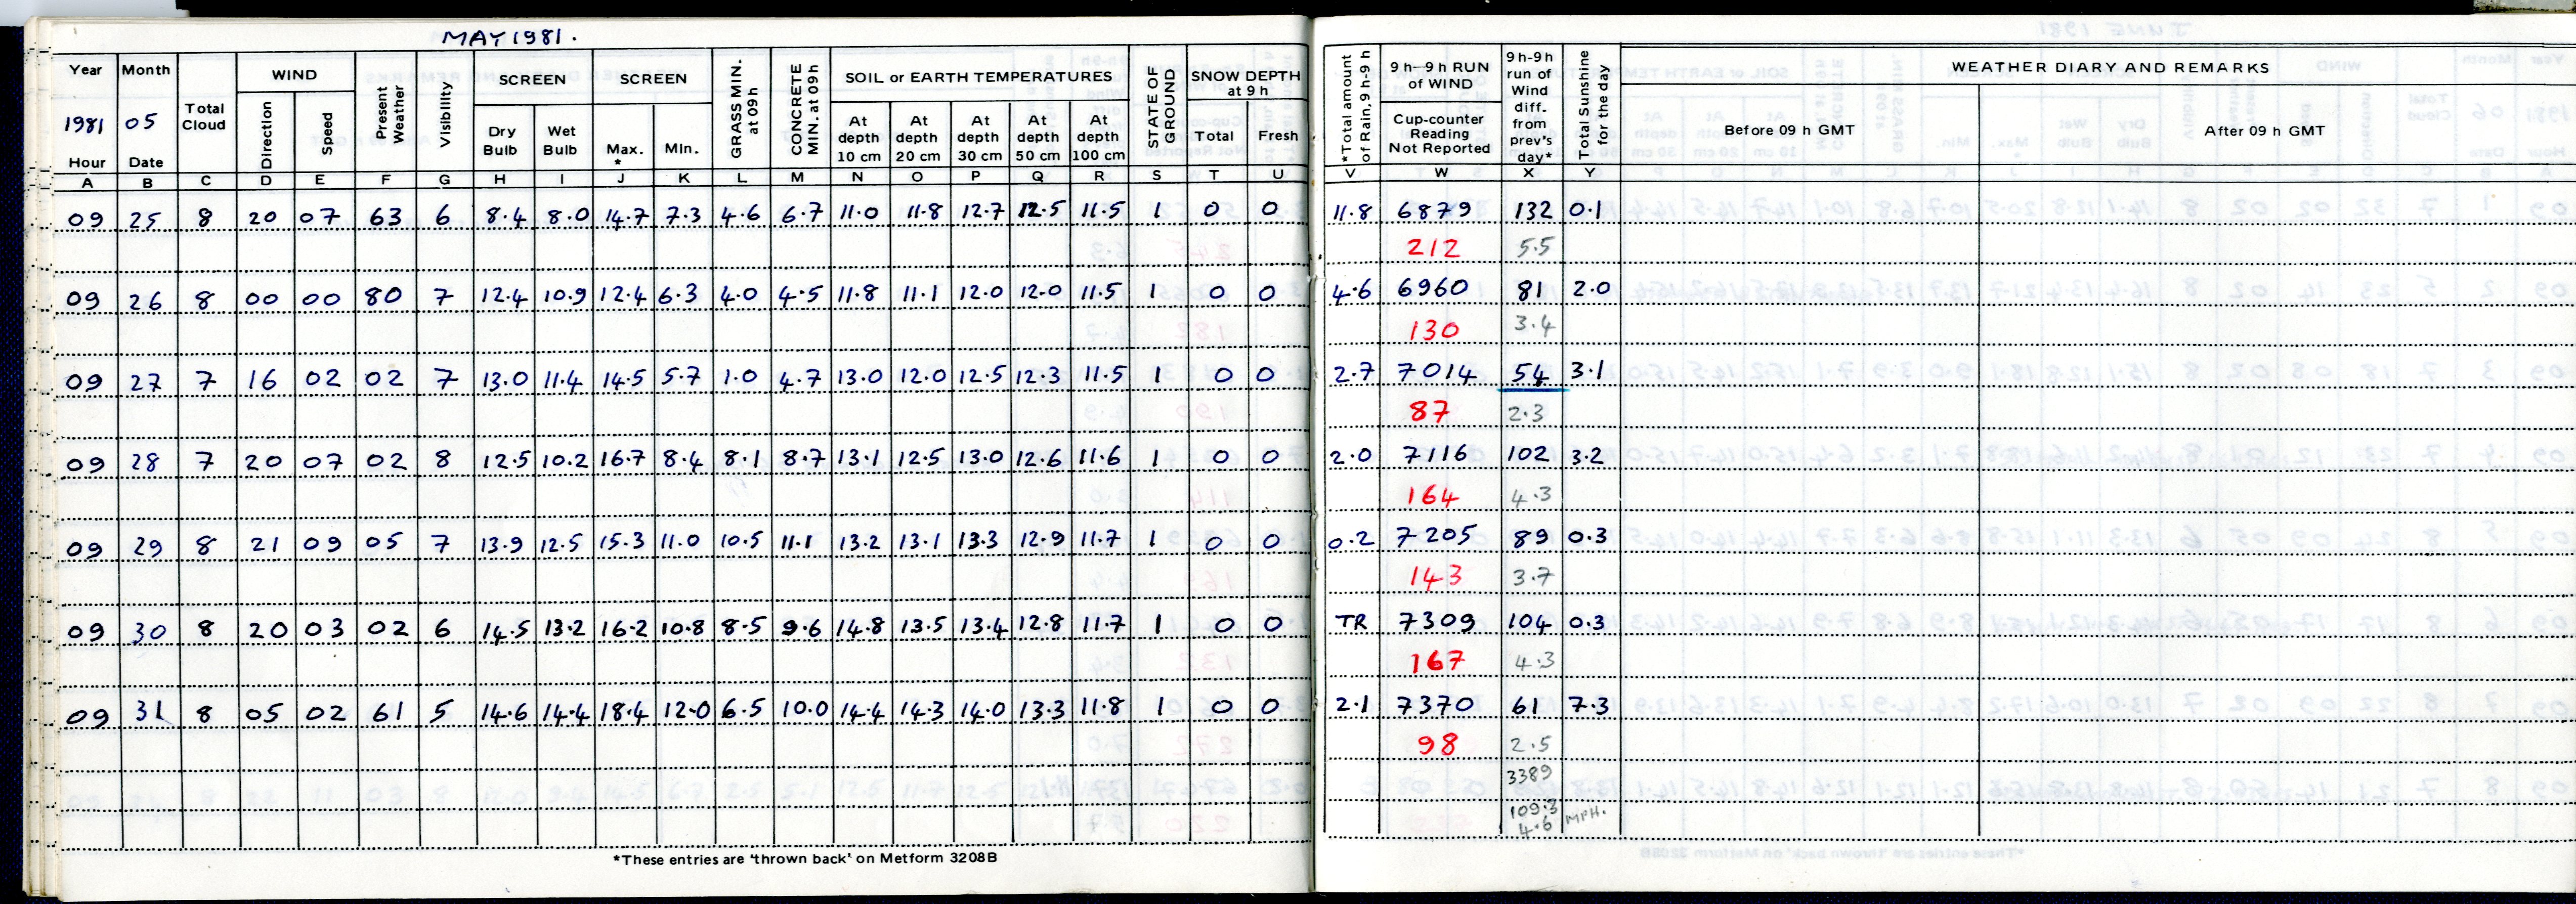 MAY 1981.
Year Month Total Cloud WIND Present Weather Visibility SCREEN SCREEN GRASS MIN. at 09h CONCRETE MIN. at 09h SOIL or EARTH TEMPERATURES STATE OF GROUND SNOW DEPTH at 9 h *Total amount of Rain, 9h-9h 9 h—9 h RUN of WIND 9 h-9 h run of Wind diff. from prev's day* Total Sunshine for the day WEATHER DIARY AND REMARKS
1981 05 Direction Speed Dry Bulb Wet Bulb Max. * Min. At depth 10 cm At depth 20 cm At depth 30 cm At depth 50 cm At depth 100 cm Total Fresh Cup-counter Reading Not Reported Before 09 h GMT After 09 h GMT
Hour Date
A B C D E F G H I J K L M N O P Q R S T U V W X Y
09 25 8 20 07 63 6 8.4 8.0 14.7 7.3 4.6 6.7 11.0 11.8 12.7 12.5 11.5 1 0 0 11.8 6879 132 0.1
212 5.5
09 26 8 00 00 80 7 12.4 10.9 12.4 6.3 4.0 4.5 11.8 11.1 12.0 12.0 11.5 1 0 0 4.6 6960 81 2.0
130 3.4
09 27 7 16 02 02 7 13.0 11.4 14.5 5.7 1.0 4.7 13.0 12.0 12.5 12.3 11.5 1 0 0 2.7 7014 54 3.1
87 2.3
09 28 7 20 07 02 8 12.5 10.2 16.7 8.4 8.1 8.7 13.1 12.5 13.0 12.6 11.6 1 0 0 2.0 7116 102 3.2
164 4.3
09 29 8 21 09 05 7 13.9 12.5 15.3 11.0 10.5 11.1 13.2 13.1 13.3 12.9 11.7 1 0 0 0.2 7205 89 0.3
143 3.7
09 30 8 20 03 02 6 14.5 13.2 16.2 10.8 8.5 9.6 14.8 13.5 13.4 12.8 11.7 1 0 0 TR 7309 104 0.3
167 4.3
09 31 8 05 02 61 5 14.6 14.4 18.4 12.0 6.5 10.0 14.4 14.3 14.0 13.3 11.8 1 0 0 2.1 7370 61 7.3
98 2.5
3389
109.3
4.6 MPH.
*These entries are 'thrown back' on Metform 3208B